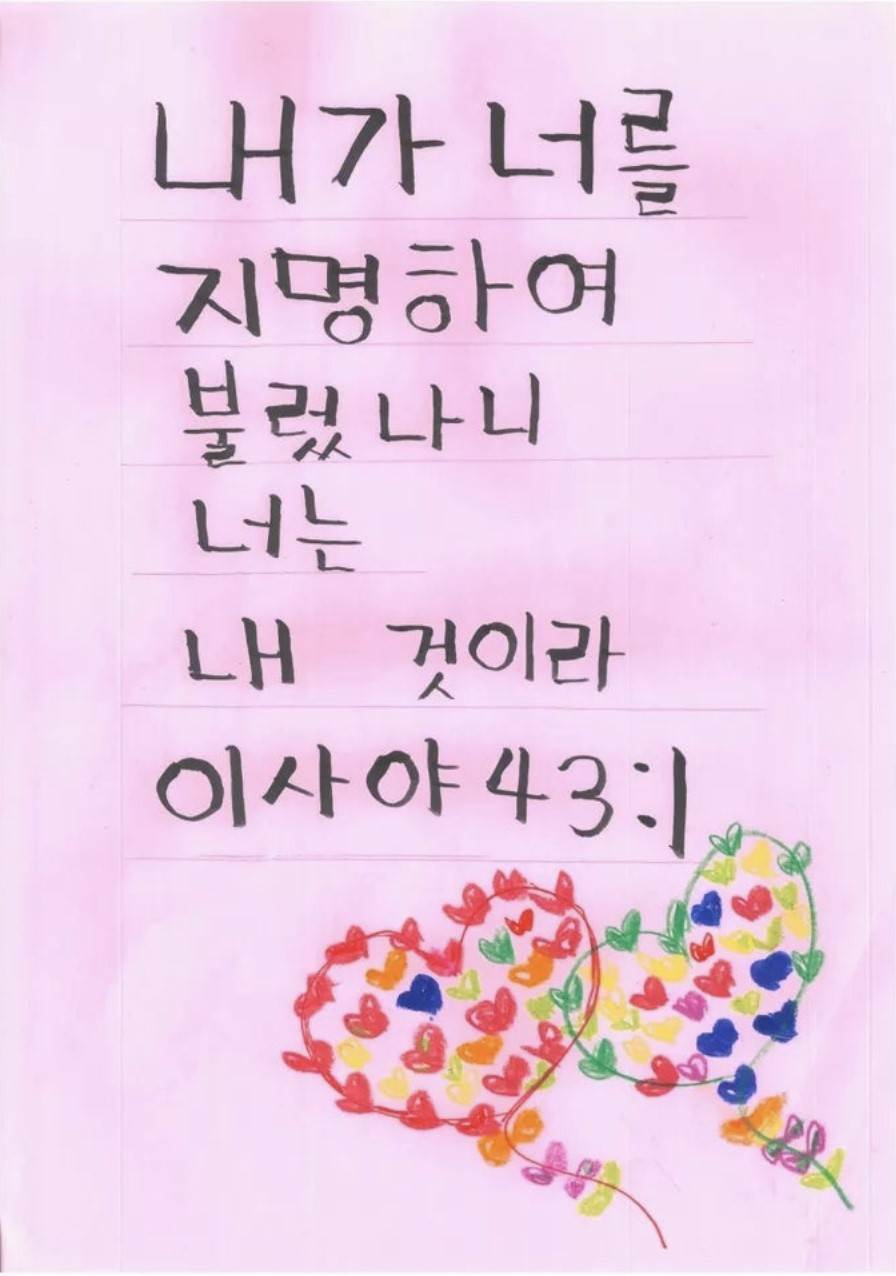 내가 너를
지명하여
불렀나니
너는
내 것이라
이사야 43:1